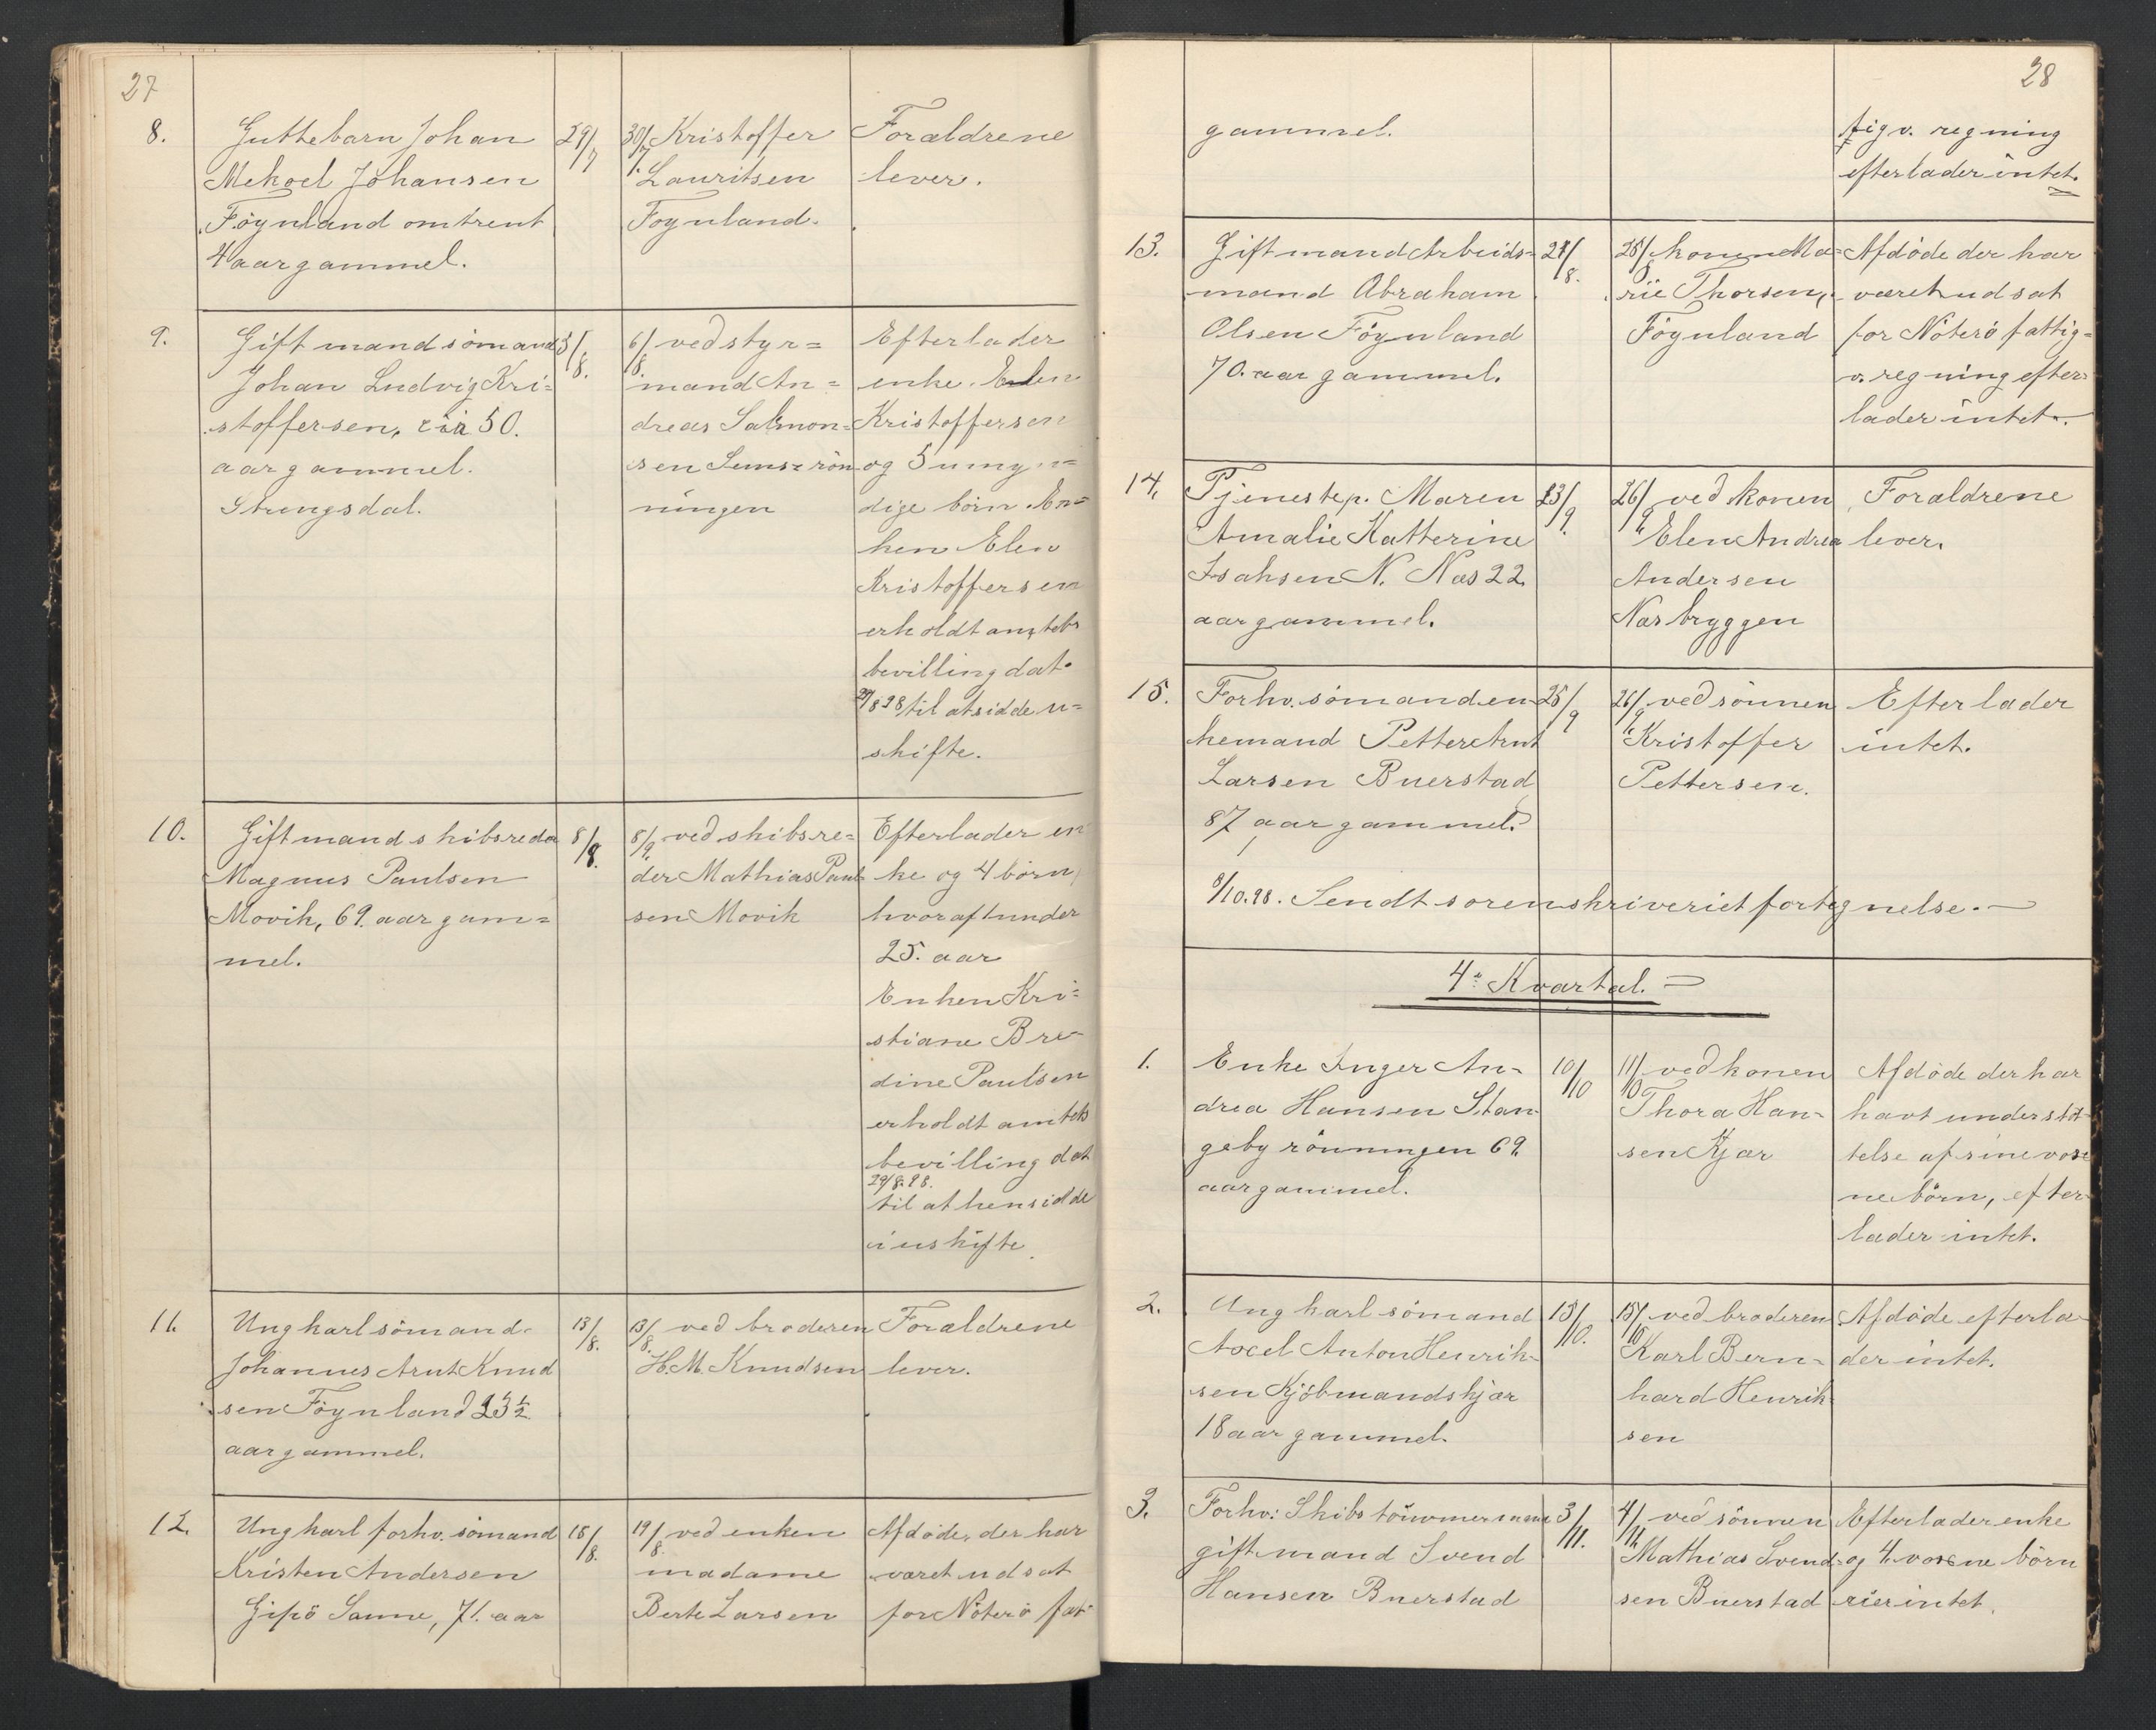 27
8.
Guttebarn Johan
Mekael Johansen
Föynland omtrent
4 aar gammel.
29/7
30/7. Kristoffer
Lauritsen
Föynland.
Forældrene
lever.
9.
Gift mand sömand
Johan Ludvig Kri=
stoffersen, cir 50.
aar gammel.
Strengsdal.
3/8.
6/8. ved styr=
mand An=
dreas Salmon=
sen Sems=rön
ningen
Efterlader
enke. Elen
Kristoffersen
og 5 umyn=
dige börn. En=
ken Elen
Kristoffersen
erholdt amtets
bevilling dat.
29/8 98 til at sidde u=
skifte.
10.
Gift mand skibsreder
Magnus Paulsen
Movik, 69. aar gam=
mel.
8/8.
8/9. ved skibsre=
der Mathias Paul
sen Movik
Efterlader en
ke og 4 börn,
hvoraf 1 under
25. aar
Enken Kri=
stiane Bre-
dine Paulsen
erholdt amtets
bevilling dat
29/8.98.
til at hensidde
i uskifte.
11.
Ungkarl sömand.
Johannes Arnt Knud
sen Föynland 23½
aar gammel.
13/8.
13/8. ved broderen
H. M. Knudsen
Forældrene
lever.
12.
Ungkarl forhv. sömand
Kristen Andersen
Gipö Sanne, 71. aar
18/8.
19/8. ved enken
madame
Berte Larsen
Afdöde, der har
været udsat
for Nöterö fat-
28
gammel.
tigv. regning
efterlader intet.
13.
Gift mand Arbeids=
mand Abraham
Olsen Föynland
70. aar gammel.
24/8.
25/8 konen Ma=
rie Thorsen,
Föynland
Afdöde der har
været udsat
for Nöterö fattig=
v. regning efter
lader intet.
14.
Tjenestep. Maren
Amalie Katterine
Isaksen N. Næs 22
aar gammel.
23/9.
26/9. ved konen
Elen Andrea
Andersen
Næsbryggen
Forældrene
lever.
15.
Forhv. sömand en-
kemand Petter Arnt
Larsen Buerstad
87 aar gammel.
25/9
26/9. ved sönnen
Kristoffer
Pettersen.
Efterlader
intet.
8/10.98. Sendt sorenskriveriet fortegnelse.
4e Kvartal.
1.
Enke Inger An-
drea Hansen Stan-
geby rönningen 69.
aar gammel.
10/10
11/10 ved konen
Thora Han-
sen Kjær
Afdöde der har
havt understöt
telse af sine voxe
ne börn, efter
lader intet.
2.
Ungkarl sömand
Axel Anton Henrik-
sen Kjöbmandskjær
18 aar gammel.
15/10.
15/10 ved broderen
Karl Bern-
hard Henrik
sen
Afdöde efterla-
der intet.
3.
Forhv: Skibstömmermand
gift mand Svend
Hansen Buerstad
3/11.
4/11. ved sönnen
Mathias Svend=
sen Buerstad
Efterlader enke
og 4. voxne börn
eier intet.